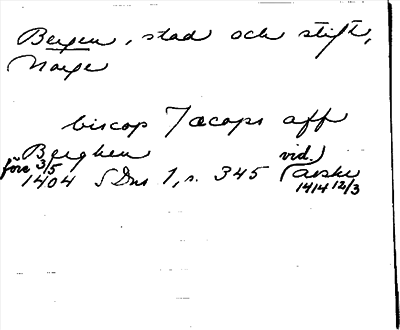 Bergen, stad och stift,
Norge
biscop Jacops aff
Berghen vid.)
före 3/5 1404 SDns 1, s. 345 (avskr
1414 12/3